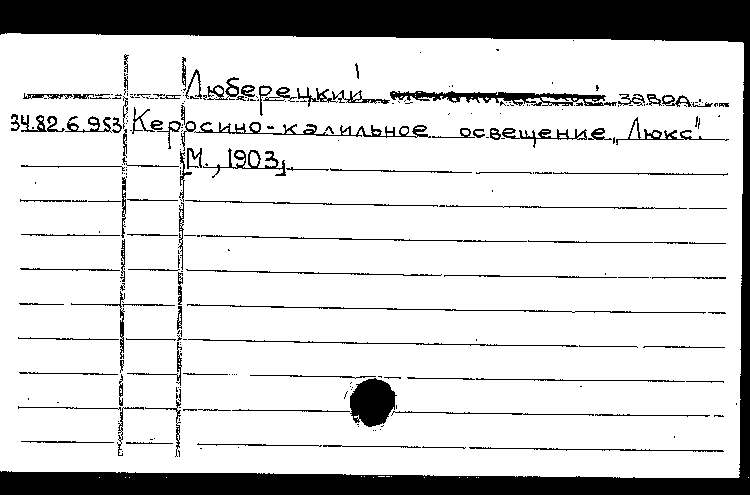 Люберецкий завод.
34.82.6.953 Керосино-калильное освещение „Люкс".
М., 1903.